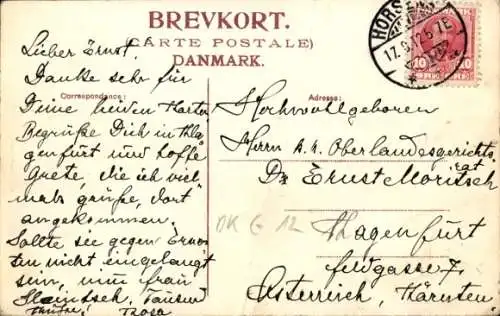 BREVKORT.
(CARTE POSTALE)
DANMARK.
HORSENS
17.6.12. 5-7E
10 10
Correspondance:
Adresse:
Lieber Ernst!
Danke sehr für
Deine beiden Karten
Begrüße Dich in Kla
genfurt und hoffe
Grete, die ich viel-
mals grüße, dort
angekommen.
Sollte sie gegen Erwar
ten nicht eingelangt
sein, nun frau
Tausend
Rosa
Hochwohlgeboren
Herrn k. k. Oberlandesgerichts
rat
Dr Ernst Moritsch
Klagenfurt
Feldgasse 7,
Österreich, Kärnten.
DK G 12